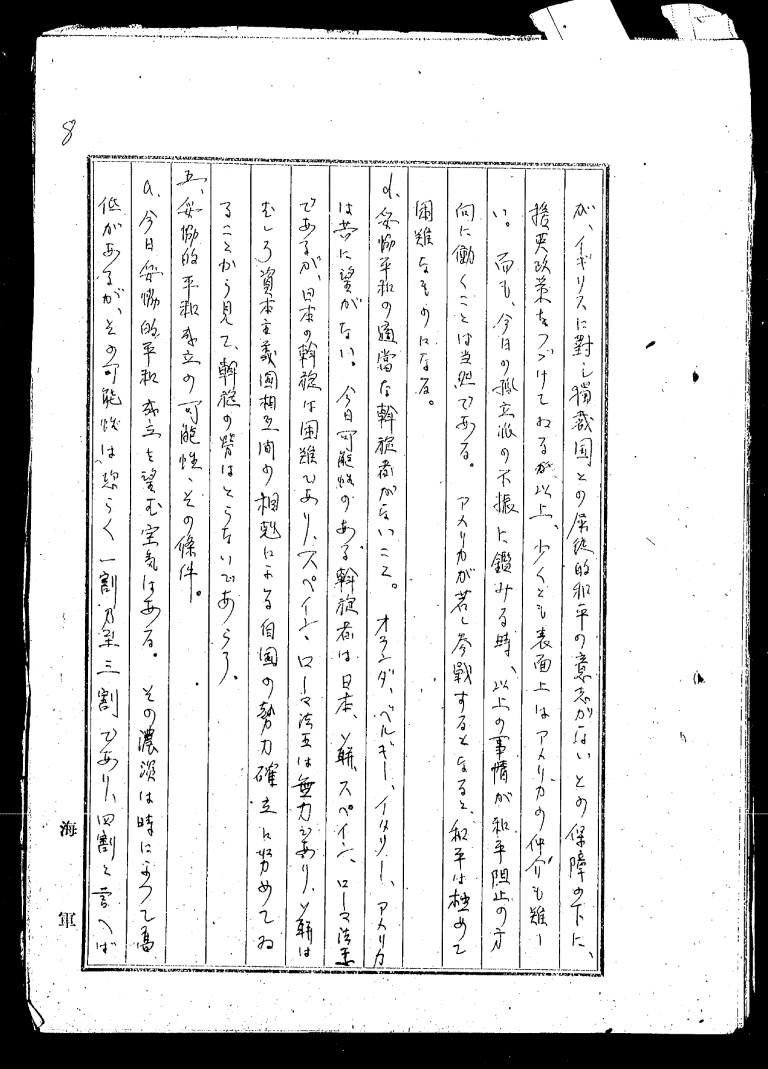 8
が、イギリスに對し獨裁国との妥協的和平の意志がないとの保障の下に、
援英政策をつづけてゐるが以上、少くとも表面上はアメリカの仲介も難し
い。而も、今日の孤立派の不振に鑑みる時、以上の事情が和平阻止の方
向に働くことは当然である。アメリカが若し参戦するとなると、和平は極めて
困難なものになる。
d、妥協平和の適當な斡旋者がないこと。オランダ、ベルギー、イタリー、アメリカ
は共に望がない。今日可能性のある斡旋者は日本、ソ聯、スペイン、ローマ法王
であるが、日本の斡旋は困難であり、スペイン、ローマ法王は無力であり、ソ聯は
むしろ資本主義国相互間の相剋による自国の勢力確立に努めてゐ
ることから見て、斡旋の労はとらないであらう。
五、妥協的平和成立の可能性、その條件。
a、今日妥協的平和成立を望む空気はある。その濃淡は時によつて高
低があるが、その可能性は恐らく一割乃至三割であり、四割と言へば
海軍